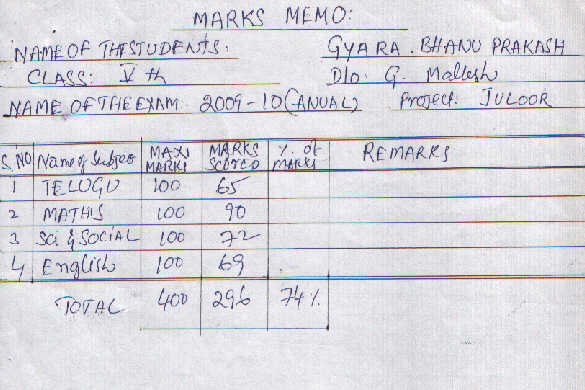 MARKS MEMO:
NAME OF THESTUDENTS: GYARA. BHANU PRAKASH
CLASS: V th D/o. G. Mallesh
NAME OF THE EXAM 2009-10 (ANUAL) Project: JULOOR
S.NO Name of Subject MAXI MARKS MARKS SCORED % of MARKS REMARKS
1 TELUGU 100 65
2 MATHIS 100 90
3 SC. & SOCIAL 100 72
4 English 100 69
TOTAL 400 296 74%